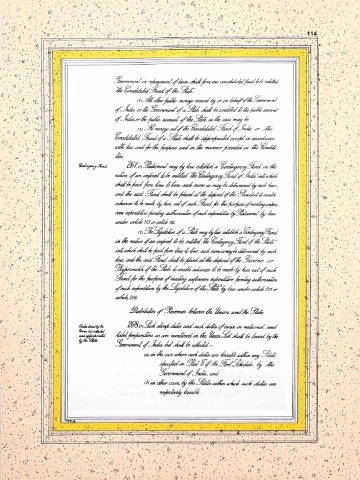 114
Government in repayment of loans shall form one consolidated fund to be entitled
"the Consolidated Fund of the State".
(2) All other public moneys received by or on behalf of the Government
of India or the Government of a State shall be credited to the public account
of India or the public account of the State, as the case may be.
(3) No moneys out of the Consolidated Fund of India or the
Consolidated Fund of a State shall be appropriated except in accordance
with law and for the purposes and in the manner provided in this Constitu-
tion.
Contingency Fund.
267. (1) Parliament may by law establish a Contingency Fund in the
nature of an imprest to be entitled "the Contingency Fund of India" into which
shall be paid from time to time such sums as may be determined by such law,
and the said Fund shall be placed at the disposal of the President to enable
advances to be made by him out of such Fund for the purposes of meeting unfore-
seen expenditure pending authorisation of such expenditure by Parliament by law
under article 115 or article 116.
(2) The Legislature of a State may by law establish a Contingency Fund
in the nature of an imprest to be entitled "the Contingency Fund of the State"
into which shall be paid from time to time such sums as may be determined by such
law, and the said Fund shall be placed at the disposal of the Governor or
Rajpramukh of the State to enable advances to be made by him out of such
Fund for the purposes of meeting unforeseen expenditure pending authorisation
of such expenditure by the Legislature of the State by law under article 205 or
article 206.
Distribution of Revenues between the Union and the States
Duties levied by the
Union but collected
and appropriated
by the States.
268. (1) Such stamp duties and such duties of excise on medicinal and
toilet preparations as are mentioned in the Union List shall be levied by the
Government of India but shall be collected—
(a) in the case where such duties are leviable within any State
specified in Part C of the First Schedule, by the
Government of India, and
(b) in other cases, by the States within which such duties are
respectively leviable.